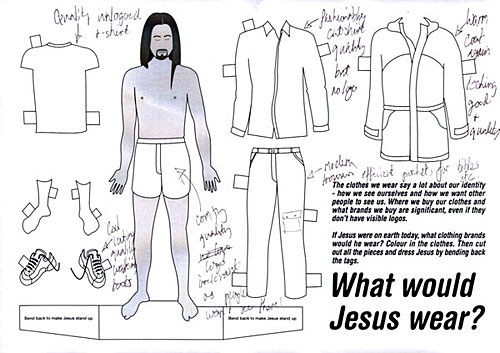 Quality unlogoed
t-shirt
fashionably
cut shirt
quality
but
no logo
Warm
Coat
again
looking
good
+
quality
modern
trousers efficient pockets for bibles
etc
Cool
looking
quality
walking
boots
comfy
quality
no logo
as people
won't see them!
The clothes we wear say a lot about our identity
- how we see ourselves and how we want other
people to see us. Where we buy our clothes and
what brands we buy are significant, even if they
don't have visible logos.
If Jesus were on earth today, what clothing brands
would he wear? Colour in the clothes. Then cut
out all the pieces and dress Jesus by bending back
the tags.
What would
Jesus wear?
Bend back to make Jesus stand up.
Bend back to make Jesus stand up.